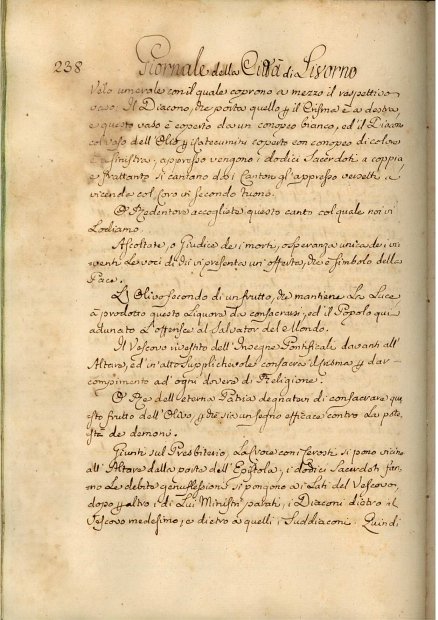 238 Giornale della Città di Livorno
Velo umerale con il quale coprono a mezzo il respettivo
vaso. Il Diacono, che porta quello p il Crisma è a destra,
e questo vaso è coperto da un conopeo bianco, ed il Diacono
col vaso dell'Olio p i Catecumini coperto con conopeo di colore
è a sinistra; appresso vengono i dodici Sacerdoti a coppia
e frattanto si cantano da i Cantori gl'appresso versetti, a
vicenda col Coro in secondo tuono.
O Redentore accogliete questo canto col quale noi vi
Lodiamo.
Ascoltate, o Giudice de i morti, e speranza unica de i vi
venti le voci di chi vi presenta un'offerta, che è simbolo della
Pace.
L'Olivo fecondo di un frutto, che mantiene la Luce
à prodotto questo Liquore da consacrarsi, ed il Popolo qui
adunato l'offerisce al Salvator del Mondo.
Il Vescovo rivestito dell'Insegne Pontificali davanti all'
Altare, ed in atto supplichevole consacra il Crisma p dar
compimento ad ogni dovere di Religione.
O Re dell'eterna Patria degnatevi di consacrare que
sto frutto dell'Olivo, p che sia un segno efficace contro la pote
stà de demoni.
Giunti sul Presbiterio, la Croce con i Ceroferi si pone vicino
all'Altare dalla parte dell'Epistola, i dodici Sacerdoti fan
no le debite genuflessioni si pongono a i Lati del Vescovo,
dopo p altro i di Lui Ministri parati, i Diaconi dietro il
Vescovo medesimo, e dietro a quelli i Suddiaconi. Quindi